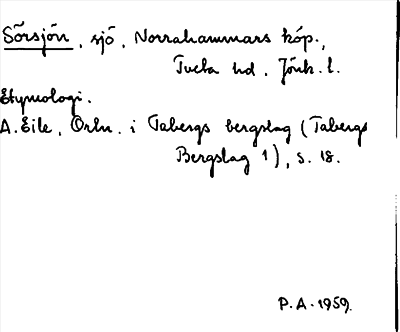 Sörsjön, sjö, Norrahammars köp.,
Tveta hd, Jönk. l.
Etymologi.
A. Eile, Ortn. i Tabergs bergslag (Tabergs
Bergslag 1), s. 18.
P.A. 1959.